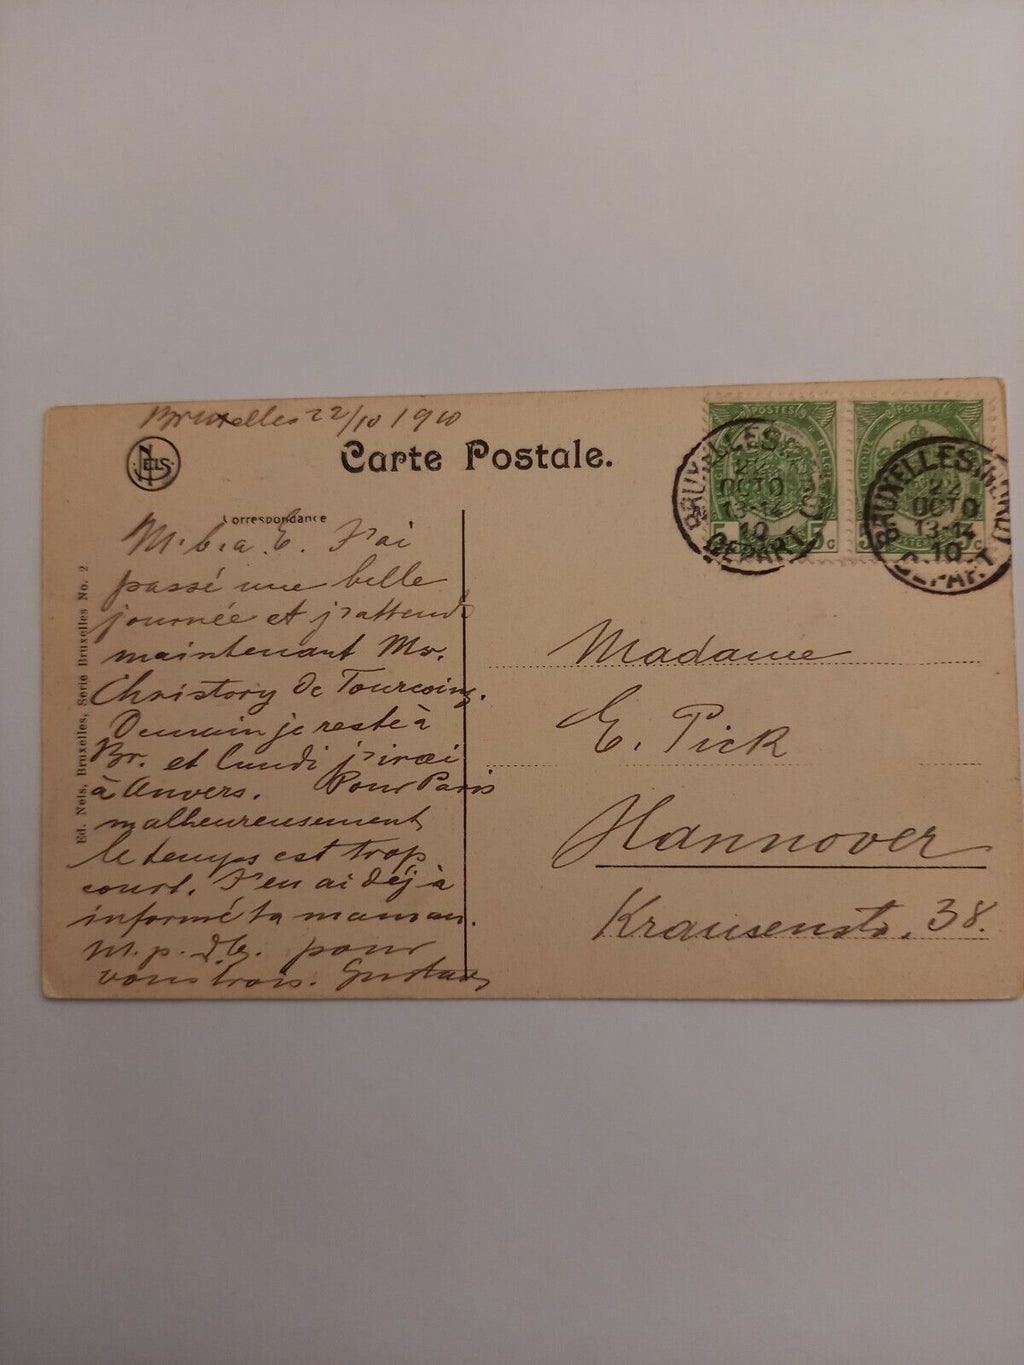 Bruxelles 22/10 1910
NELS
Carte Postale.
Correspondance
M. b. a. E. J'ai
passé une belle
journée et j'attends
maintenant Mr.
Christory de Tourcoing.
Demain je reste à
Br. et lundi j'irai
à Anvers. Pour Paris
malheureusement
le temps est trop
court. J'en ai déjà
informé ta maman.
M. p. d. b. pour
vous trois. Gustav
Ed. Nels, Bruxelles, Serie Bruxelles No. 2
POSTES
5 c 5 c
BRUXELLES (NORD)
22
OCTO
13-14
10
DEPART
POSTES
BRUXELLES (NORD)
22
OCTO
13-14
10
DEPART
Madame
E. Pick
Hannover
Krausenstr. 38.